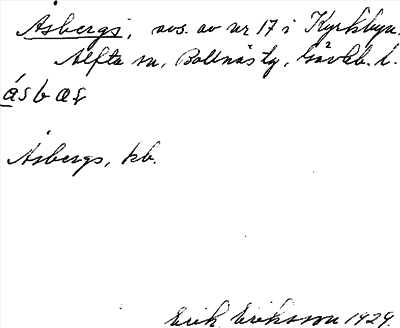 Åsbergs, avs. av nr 17 i Kyrkbyn.
Alfta sn, Bollnäs tg, Gävleb. l.
ásbæṣ
Åsbergs, kb.
Erik Eriksson 1929.